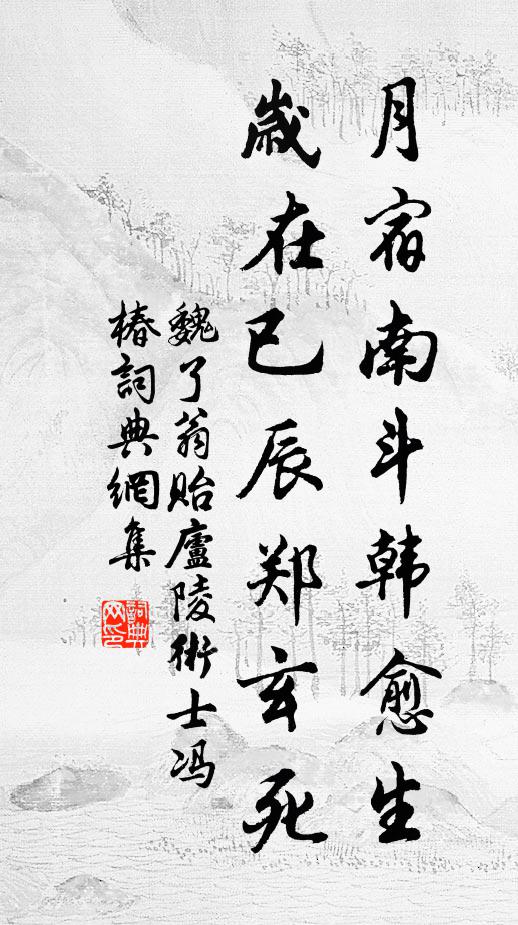 月宿南斗韩愈生
歲在巳辰郑玄死
魏了翁貽廬陵術士冯
椿詞典網集
詞典
网印